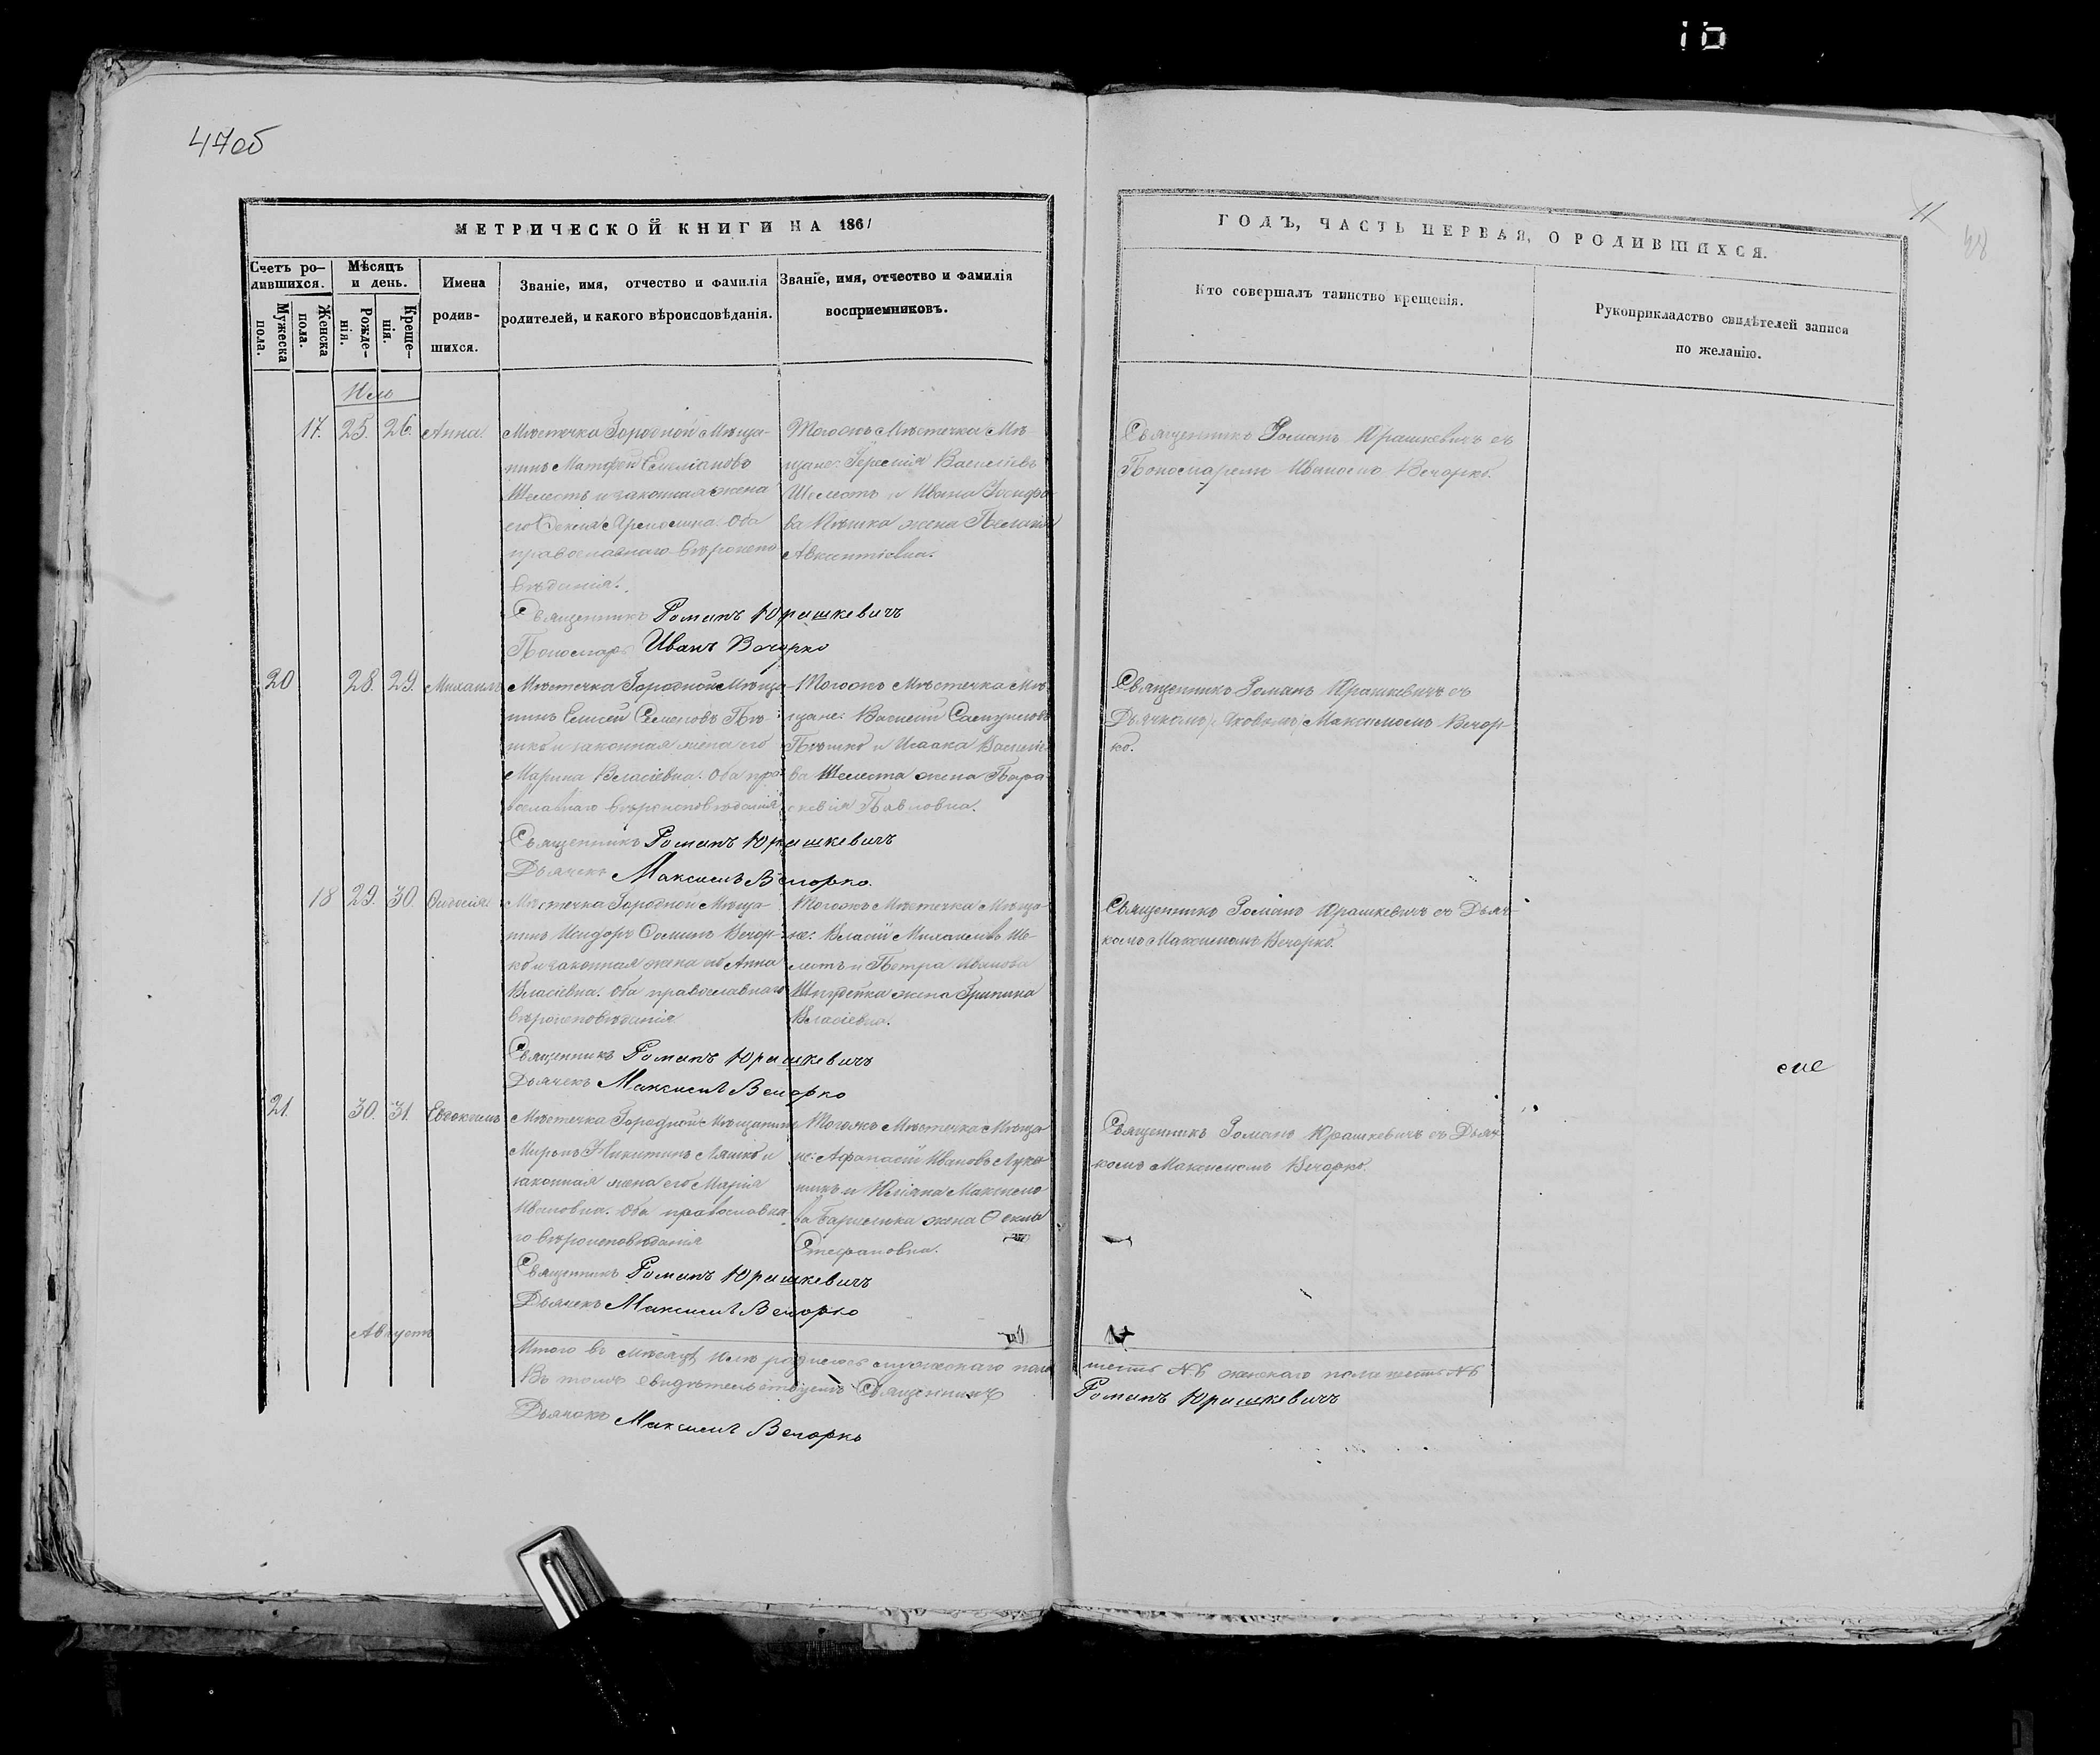 16
47об
11
48
МЕТРИЧЕСКОЙ КНИГИ НА 1861
ГОДЪ, ЧАСТЬ ПЕРВАЯ, О РОДИВШИХСЯ.
Счетъ ро-
дившихся.
Мужеска
пола.
Женска
пола.
Мѣсяцъ
и день.
Рожде-
нія.
Креще-
нія.
Имена
родив-
шихся.
Званіе, имя, отчество и фамилія
родителей, и какого вѣроисповѣданія.
Званіе, имя, отчество и фамилія
восприемниковъ.
Кто совершалъ таинство крещенія.
Рукоприкладство свидѣтелей записи
по желанію.
Июль
17. 25. 26. Анна.
Мѣстечка Городной Мѣща-
нинъ Матфей Емеліановъ
Шелестъ и законная жена
его Ярмолина. Оба
православнаго вѣроиспо
вѣданія.
Священникъ Романъ Юрашкевичъ
Пономарь Иванъ Вечорко
Тогожъ Мѣстечка Мѣ-
щане: Еремія Васильевъ
Шелестъ и Ивана Іосифо
ва жена Пелагія
Авксентіевна.
Священникъ Романъ Юрашкевичъ съ
Пономаремъ Иваномъ Вечорко.
20 28. 29. Михаилъ
Мѣстечка Городной Мѣща-
нинъ Елисей Семеновъ Пѣ-
шко и законная жена его
Марина Власіевна. Оба пра-
вославнаго вѣроисповѣданія
Священникъ Романъ Юрашкевичъ
Дьячекъ Максимъ Вечорко.
Тогожъ Мѣстечка Мѣ-
щане: Василій Самуиловъ
Пѣшко и Исаака Василіе-
ва Шелеста жена Пара
скевія Павловна.
Священникъ Романъ Юрашкевичъ съ
Дьячкомъ Максимомъ Вечор-
ко.
18 29. 30.
Мѣстечка Городной Мѣща-
нинъ Исидоръ Ѳоминъ Вечор-
ко и законная жена его Анна
Власіевна. Оба православнаго
вѣроисповѣданія
Священникъ Романъ Юрашкевичъ
Дьячекъ Максимъ Вечорко
Тогожъ Мѣстечка Мѣща-
не: Власій Михаиловъ Ше-
лестъ и Петра Иванова
Шпудейка жена Грипина
Власіевна.
Священникъ Романъ Юрашкевичъ съ Дьяч-
комъ Максимомъ Вечорко.
21. 30. 31. Евдокимъ
Мѣстечка Городной Мѣщанинъ
Миронъ Никитинъ Ляшко и
законная жена его Марія
Ивановна. Оба православна
го вѣроисповѣданія
Священникъ Романъ Юрашкевичъ
Дьячекъ Максимъ Вечорко
Тогожъ Мѣстечка Мѣща
не: Афанасій Ивановъ
и Максимо
ва жена
Стефановна.
Священникъ Романъ Юрашкевичъ съ Дьяч-
комъ Максимомъ Вечорко.
Августъ
Итого въ мѣсяцѣ Июлѣ родилось мужескаго пола
шесть №6 женскаго пола шесть №6
Въ томъ свидѣтельствуемъ Священникъ
Романъ Юрашкевичъ
Дьячокъ Максимъ Вечорко